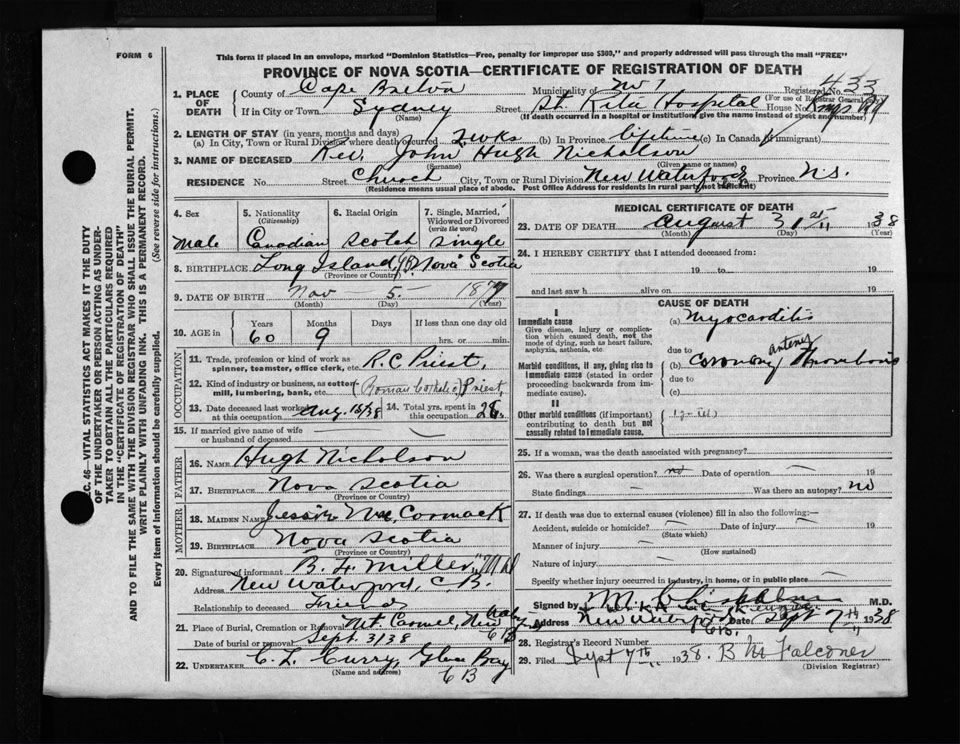 FORM 6
This form if placed in an envelope, marked "Dominion Statistics—Free, penalty for improper use $300," and properly addressed will pass through the mail "FREE"
PROVINCE OF NOVA SCOTIA—CERTIFICATE OF REGISTRATION OF DEATH
1. PLACE OF DEATH County of Cape Breton Municipality of Registered No. 433
(For use of Registrar General only)
If in City or Town Sydney Street St. Rita Hospital House No.
(Name) (If death occurred in a hospital or institution, give the name instead of street and number)
2. LENGTH OF STAY (in years, months and days)
(a) In City, Town or Rural Division where death occurred 2 wks (b) In Province lifetime (c) In Canada (if immigrant)
3. NAME OF DECEASED Rev. John Hugh Nicholson
(Surname) (Given name or names)
RESIDENCE No. Street Church City, Town or Rural Division New Waterford Province N.S.
(Residence means usual place of abode. Post Office Address for residents in rural parts not sufficient)
4. Sex male
5. Nationality (Citizenship) Canadian
6. Racial Origin Scotch
7. Single, Married, Widowed or Divorced (write the word) single
8. BIRTHPLACE Long Island, CB Nova Scotia
(Province or Country)
9. DATE OF BIRTH Nov 5 1877
(Month) (Day) (Year)
10. AGE in Years 60 Months 9 Days If less than one day old hrs. or min.
OCCUPATION
11. Trade, profession or kind of work as spinner, teamster, office clerk, etc. R.C Priest,
12. Kind of industry or business, as cotton mill, lumbering, bank, etc. (Roman Catholic) Priest,
13. Date deceased last worked at this occupation Aug. 15/38
14. Total yrs. spent in this occupation 28.
15. If married give name of wife or husband of deceased —
FATHER
16. Name Hugh Nicholson
17. Birthplace Nova Scotia
(Province or Country)
MOTHER
18. MAIDEN NAME Jessie McCormack
19. Birthplace Nova Scotia
(Province or Country)
20. Signature of informant B. F. Miller, M.D
Address New Waterford, C.B.
Relationship to deceased Friend
21. Place of Burial, Cremation or Removal Mt. Carmel, New Waterford CB
Date of burial or removal Sept. 3/38
22. UNDERTAKER C. L. Curry, Glace Bay CB
(Name and address)
MEDICAL CERTIFICATE OF DEATH
23. DATE OF DEATH August 31st 1938
(Month) (Day) (Year)
24. I HEREBY CERTIFY that I attended deceased from:
19 to 19
and last saw h alive on 19
CAUSE OF DEATH
I
Immediate cause
Give disease, injury or complication which caused death, not the mode of dying, such as heart failure, asphyxia, asthenia, etc.
(a) Myocarditis
due to
Morbid conditions, if any, giving rise to immediate cause (stated in order proceeding backwards from immediate cause).
(b) coronary artery thrombosis
due to
(c)
II
Other morbid conditions (if important) contributing to death but not causally related to immediate cause.
25. If a woman, was the death associated with pregnancy?
26. Was there a surgical operation? no Date of operation — 19
State findings — Was there an autopsy? no
27. If death was due to external causes (violence) fill in also the following:—
Accident, suicide or homicide? — Date of injury — 19
(State which)
Manner of injury —
(How sustained)
Nature of injury —
Specify whether injury occurred in industry, in home, or in public place —
Signed by M. M.D.
Address New Waterford CB. Date Sept 7th 1938
28. Registrar's Record Number
29. Filed Sept 7th 1938. B M Falconer
(Division Registrar)
SEC. 46—VITAL STATISTICS ACT MAKES IT THE DUTY
OF THE UNDERTAKER OR PERSON ACTING AS UNDER-
TAKER TO OBTAIN ALL THE PARTICULARS REQUIRED
IN THE "CERTIFICATE OF REGISTRATION OF DEATH"
AND TO FILE THE SAME WITH THE DIVISION REGISTRAR WHO SHALL ISSUE THE BURIAL PERMIT.
WRITE PLAINLY WITH UNFADING INK. THIS IS A PERMANENT RECORD.
Every item of Information should be carefully supplied. (See reverse side for instructions.)